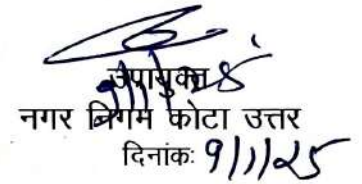 उपायुक्त
नगर निगम कोटा उत्तर
दिनांकः 9/1/25